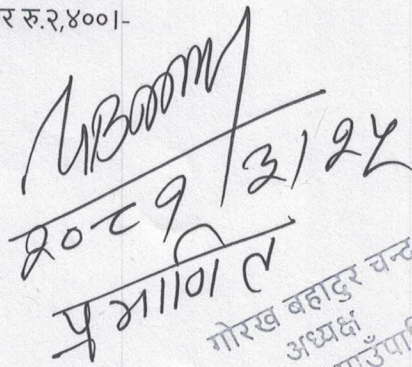 र रु.२,४००।-
२०८१/३/२५
प्रमाणित
गोरख बहादुर चन्द
अध्यक्ष
गाउँपा